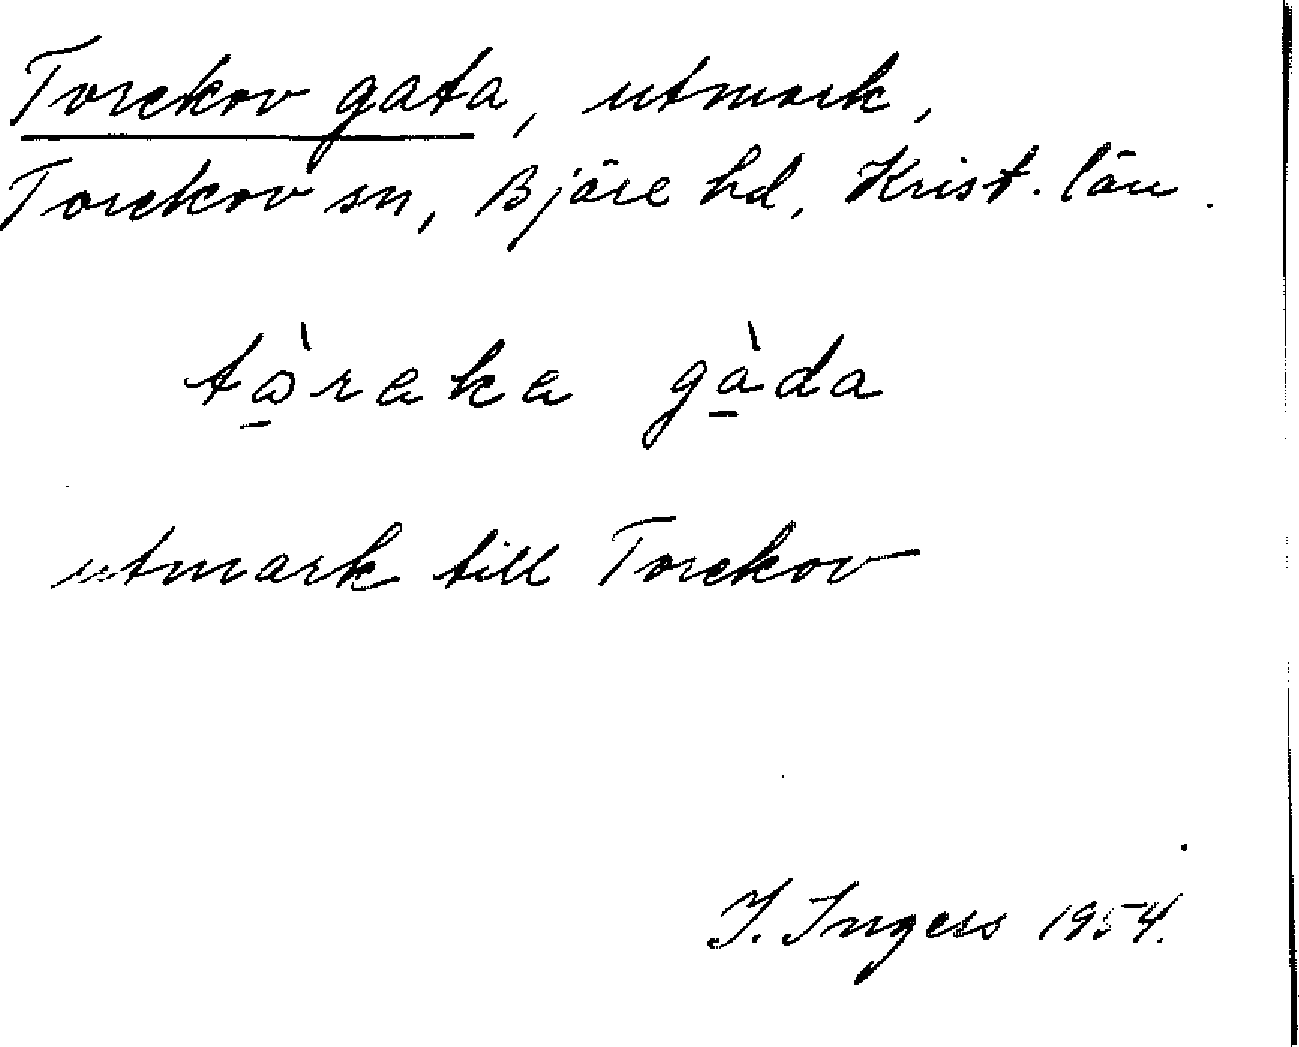 Torekov gata, utmark,
Torekov sn, Bjäre hd, Krist. län.
tɷ̠̀raka gà̠da
utmark till Torekov
I. Ingers 1954.